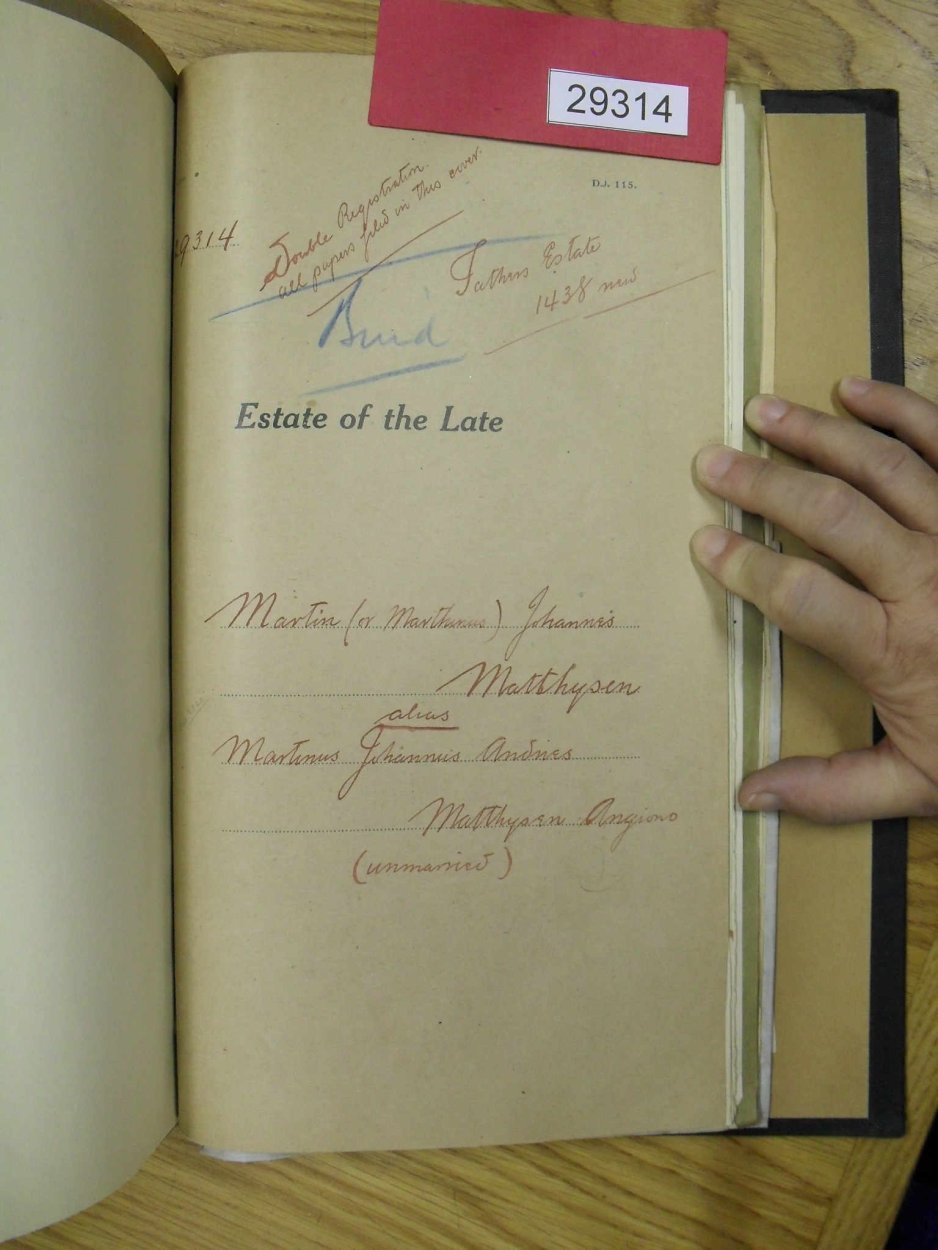 29314
D.J. 115.
9314
Double Registration.
all papers filed in this cover.
Fathers Estate
1438
Bind
Estate of the Late
Martin (or Marthinus) Johannes
Matthysen
alias
Martinus Johannes Andries
Matthysen Angiono
(unmarried)